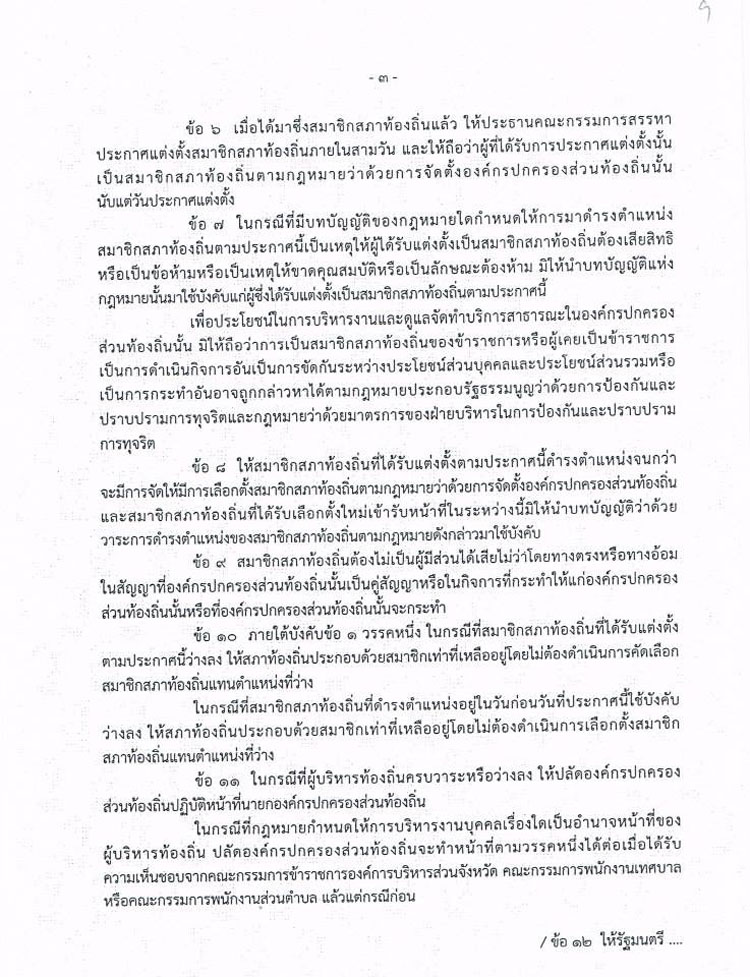 - ๓ -
ข้อ ๖ เมื่อได้มาซึ่งสมาชิกสภาท้องถิ่นแล้ว ให้ประธานคณะกรรมการสรรหา
ประกาศแต่งตั้งสมาชิกสภาท้องถิ่นภายในสามวัน และให้ถือว่าผู้ที่ได้รับการประกาศแต่งตั้งนั้น
เป็นสมาชิกสภาท้องถิ่นตามกฎหมายว่าด้วยการจัดตั้งองค์กรปกครองส่วนท้องถิ่นนั้น
นับแต่วันประกาศแต่งตั้ง
ข้อ ๗ ในกรณีที่มีบทบัญญัติของกฎหมายใดกำหนดให้การมาดำรงตำแหน่ง
สมาชิกสภาท้องถิ่นตามประกาศนี้เป็นเหตุให้ผู้ได้รับแต่งตั้งเป็นสมาชิกสภาท้องถิ่นต้องเสียสิทธิ
หรือเป็นข้อห้ามหรือเป็นเหตุให้ขาดคุณสมบัติหรือเป็นลักษณะต้องห้าม มิให้นำบทบัญญัติแห่ง
กฎหมายนั้นมาใช้บังคับแก่ผู้ซึ่งได้รับแต่งตั้งเป็นสมาชิกสภาท้องถิ่นตามประกาศนี้
เพื่อประโยชน์ในการบริหารงานและดูแลจัดทำบริการสาธารณะในองค์กรปกครอง
ส่วนท้องถิ่นนั้น มิให้ถือว่าการเป็นสมาชิกสภาท้องถิ่นของข้าราชการหรือผู้เคยเป็นข้าราชการ
เป็นการดำเนินกิจการอันเป็นการขัดกันระหว่างประโยชน์ส่วนบุคคลและประโยชน์ส่วนรวมหรือ
เป็นการกระทำอันอาจถูกกล่าวหาได้ตามกฎหมายประกอบรัฐธรรมนูญว่าด้วยการป้องกันและ
ปราบปรามการทุจริตและกฎหมายว่าด้วยมาตรการของฝ่ายบริหารในการป้องกันและปราบปราม
การทุจริต
ข้อ ๘ ให้สมาชิกสภาท้องถิ่นที่ได้รับแต่งตั้งตามประกาศนี้ดำรงตำแหน่งจนกว่า
จะมีการจัดให้มีการเลือกตั้งสมาชิกสภาท้องถิ่นตามกฎหมายว่าด้วยการจัดตั้งองค์กรปกครองส่วนท้องถิ่น
และสมาชิกสภาท้องถิ่นที่ได้รับเลือกตั้งใหม่เข้ารับหน้าที่ในระหว่างนี้มิให้นำบทบัญญัติว่าด้วย
วาระการดำรงตำแหน่งของสมาชิกสภาท้องถิ่นตามกฎหมายดังกล่าวมาใช้บังคับ
ข้อ ๙ สมาชิกสภาท้องถิ่นต้องไม่เป็นผู้มีส่วนได้เสียไม่ว่าโดยทางตรงหรือทางอ้อม
ในสัญญาที่องค์กรปกครองส่วนท้องถิ่นนั้นเป็นคู่สัญญาหรือในกิจการที่กระทำให้แก่องค์กรปกครอง
ส่วนท้องถิ่นนั้นหรือที่องค์กรปกครองส่วนท้องถิ่นนั้นจะกระทำ
ข้อ ๑๐ ภายใต้บังคับข้อ ๑ วรรคหนึ่ง ในกรณีที่สมาชิกสภาท้องถิ่นที่ได้รับแต่งตั้ง
ตามประกาศนี้ว่างลง ให้สภาท้องถิ่นประกอบด้วยสมาชิกเท่าที่เหลืออยู่โดยไม่ต้องดำเนินการคัดเลือก
สมาชิกสภาท้องถิ่นแทนตำแหน่งที่ว่าง
ในกรณีที่สมาชิกสภาท้องถิ่นที่ดำรงตำแหน่งอยู่ในวันก่อนวันที่ประกาศนี้ใช้บังคับ
ว่างลง ให้สภาท้องถิ่นประกอบด้วยสมาชิกเท่าที่เหลืออยู่โดยไม่ต้องดำเนินการเลือกตั้งสมาชิก
สภาท้องถิ่นแทนตำแหน่งที่ว่าง
ข้อ ๑๑ ในกรณีที่ผู้บริหารท้องถิ่นครบวาระหรือว่างลง ให้ปลัดองค์กรปกครอง
ส่วนท้องถิ่นปฏิบัติหน้าที่นายกองค์กรปกครองส่วนท้องถิ่น
ในกรณีที่กฎหมายกำหนดให้การบริหารงานบุคคลเรื่องใดเป็นอำนาจหน้าที่ของ
ผู้บริหารท้องถิ่น ปลัดองค์กรปกครองส่วนท้องถิ่นจะทำหน้าที่ตามวรรคหนึ่งได้ต่อเมื่อได้รับ
ความเห็นชอบจากคณะกรรมการข้าราชการองค์การบริหารส่วนจังหวัด คณะกรรมการพนักงานเทศบาล
หรือคณะกรรมการพนักงานส่วนตำบล แล้วแต่กรณีก่อน
/ ข้อ ๑๒ ให้รัฐมนตรี ....